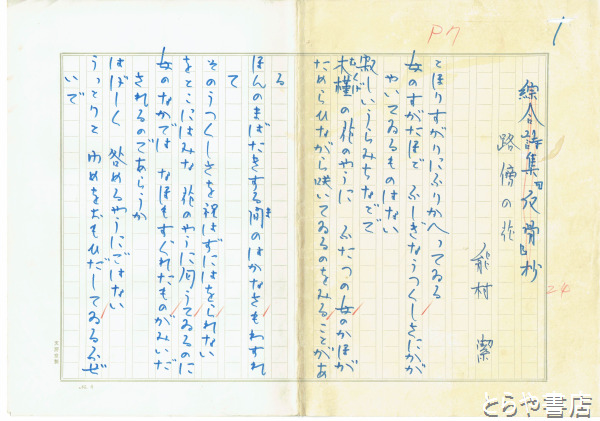 P7
1
綜合詩集『夜の骨』抄
24
路傍の花
能村 潔
とほりすがりにふりかへってゐる
女のすがたほど ふしぎなうつくしさにかが
やいてゐるものはない
寂しいうらみちなどで
木槿の花のやうに ふたつの女のかほが
ためらひながら咲いてゐるのをみることがあ
る
ほんのまばたきする間のはかなさもわすれ
て
そのうつくしさを祝はずにはをられない
をとこにはみな 花のやうに匂うてゐるのに
女のなかでは なほもすぐれたものがみいだ
されるのであらうか
はげしく 咎めるやうにではない
うっとりと ゆめをおもひだしてゐるふぜ
いで
とらや書店